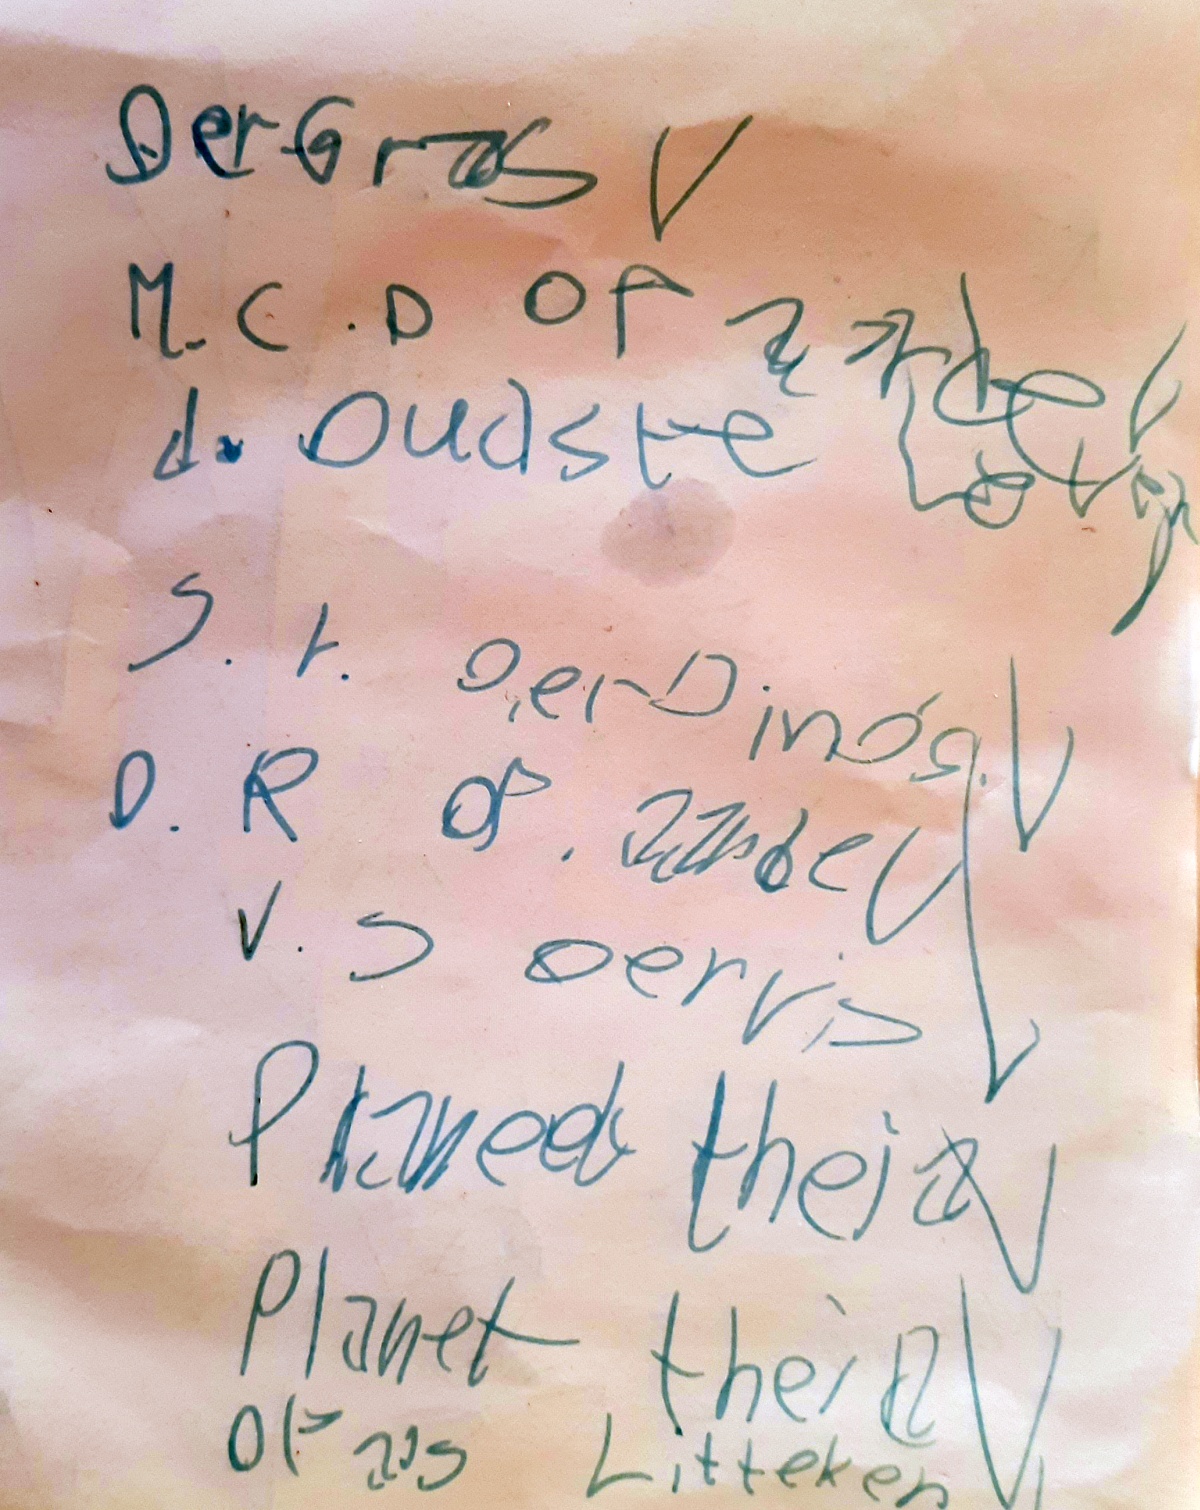 Der Gras V
M. C. D OP aarde V
d. Oudste
S. t. Der Dino's. V
D. R OP. aarde V
V. S oervis
Planeed theia V
Planet theia V
OP aas Litteken